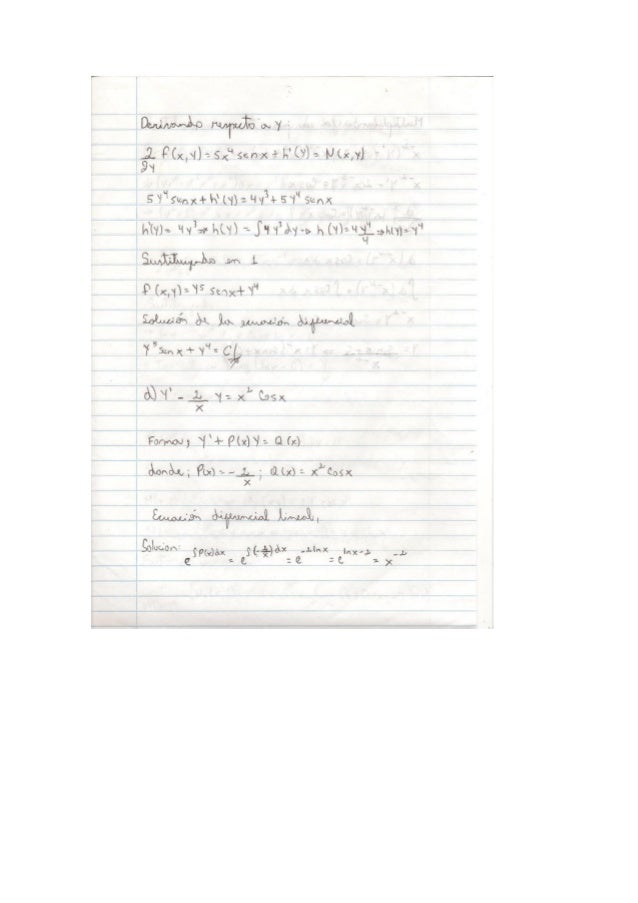 Derivando respecto a y:
2/2y f(x,y)=5x⁴ senx+h'(y)=N(x,y)
5y⁴ senx+h'(y)=4y³+5y⁴ senx
h'(y)=4y³⇒h(y)=∫4y³dy→h(y)=4y⁴/4⇒h(y)=y⁴
Sustituyendo en 1
f(x,y)=y⁵ senx+y⁴
Solución de la ecuación diferencial
y⁵senx+y⁴=C//
d) y'-2/x y=x² Cosx
Forma, y'+P(x)y=Q(x)
donde; P(x)=-2/x; Q(x)=x²Cosx
Ecuación diferencial lineal,
Solucion: e^∫P(x)dx=e^∫(-2/x)dx=e^-2lnx=e^lnx-2=x^-2